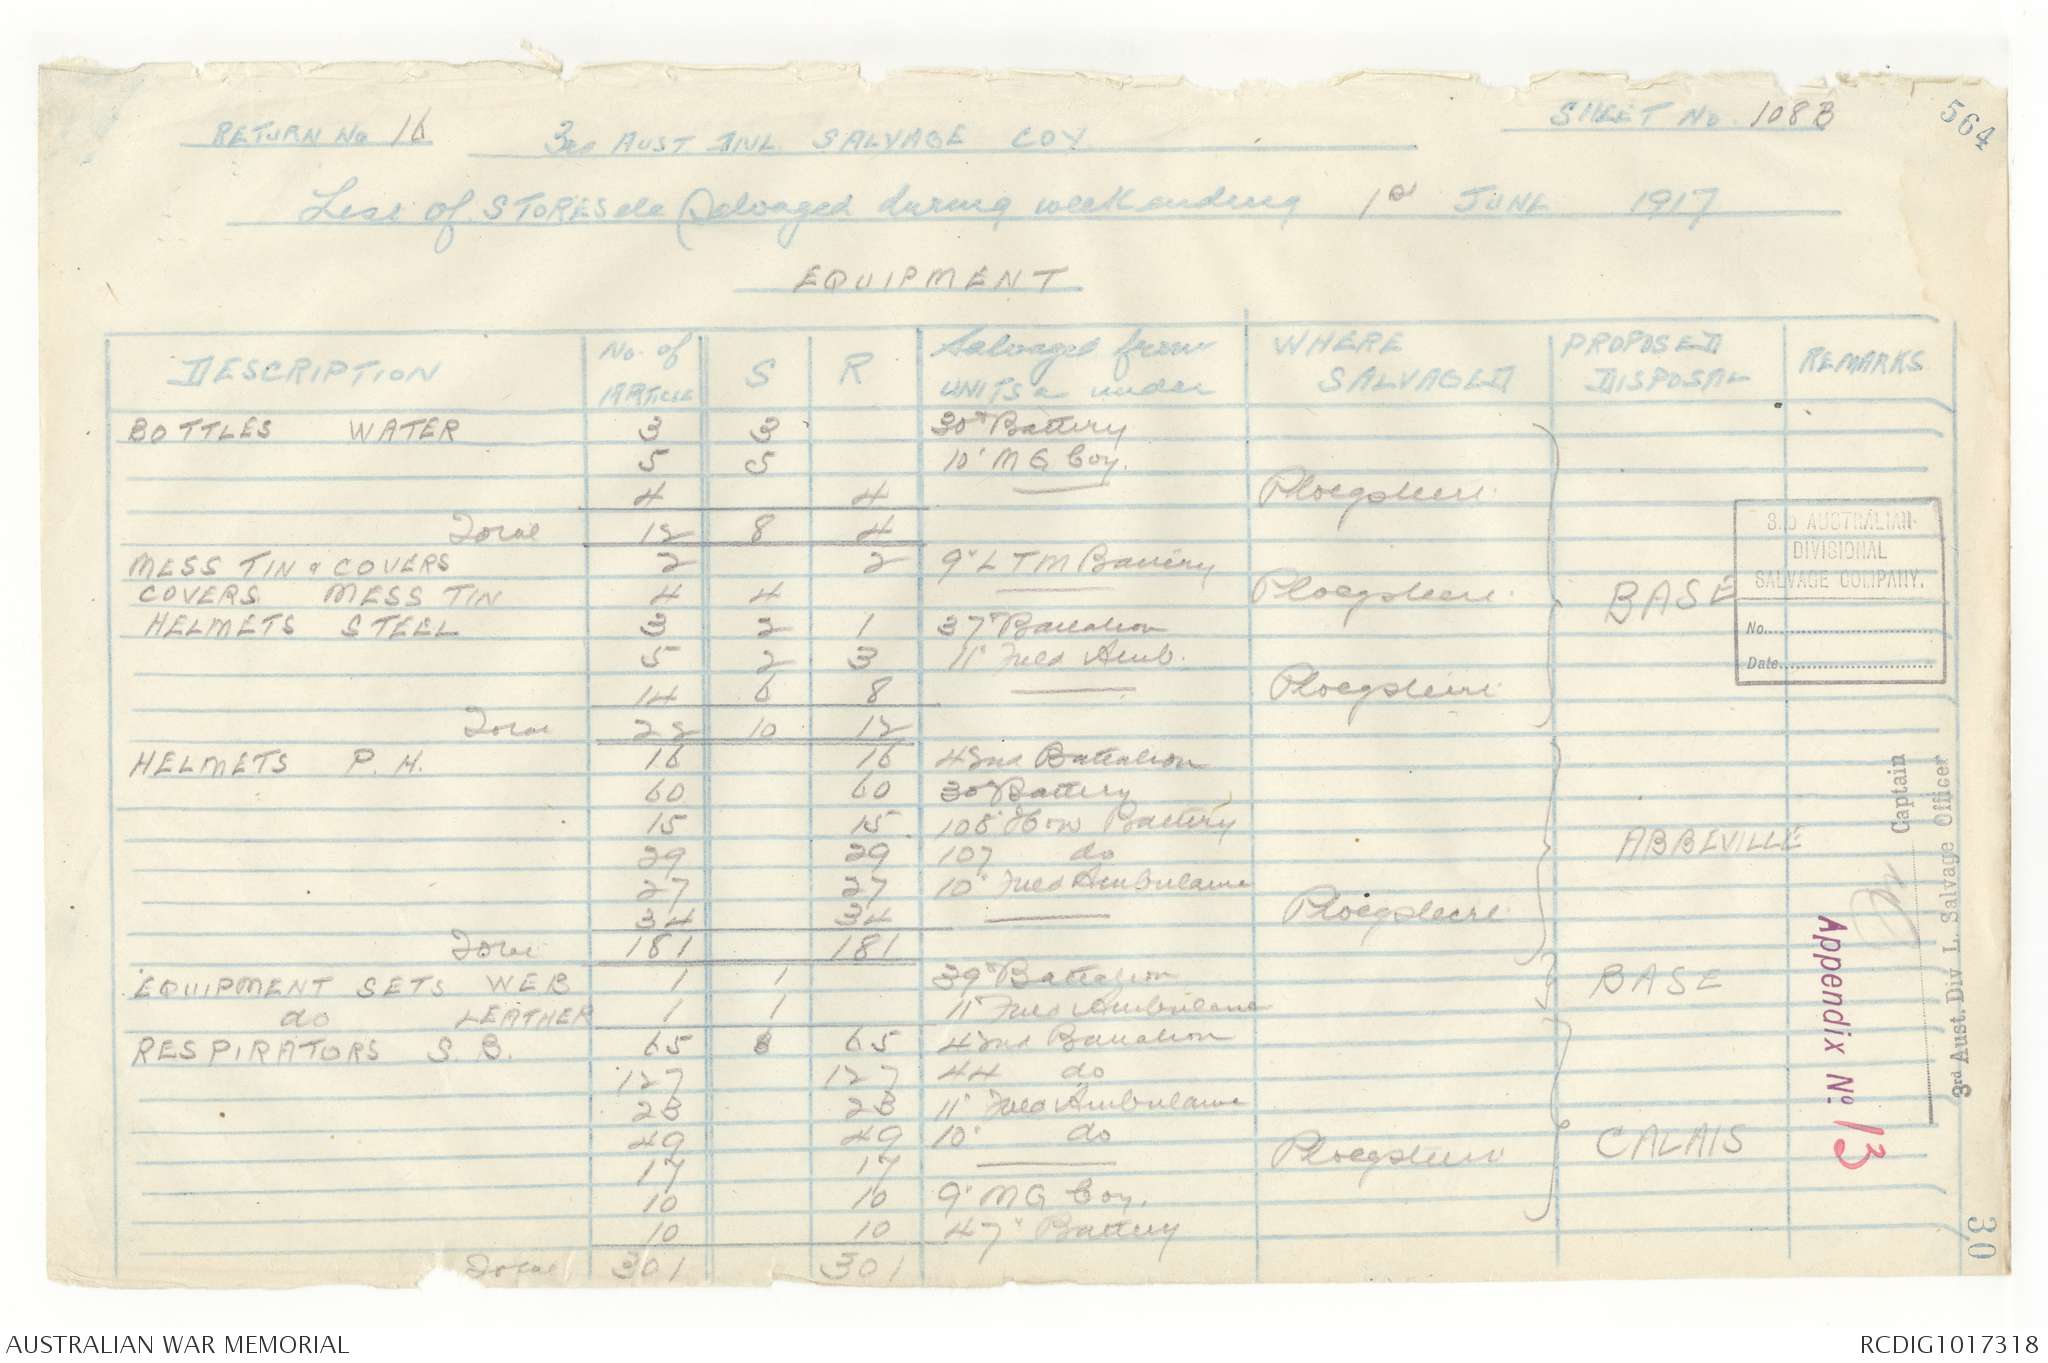 SHEET No. 108B
564
RETURN No 16 3RD AUST DIVL SALVAGE COY
List of STORES etc Salvaged during week ending 1st JUNE 1917
EQUIPMENT
DESCRIPTION No. of ARTICLES S R Salvaged from UNITS as under WHERE SALVAGED PROPOSED DISPOSAL REMARKS
BOTTLES WATER 3 3 30th Battery
5 5 10th M G Coy.
4 4 —— Ploegsteert
Total 12 8 4
MESS TIN & COVERS 2 2 9th L T M Battery
COVERS MESS TIN 4 4 —— Ploegsteert BASE
HELMETS STEEL 3 2 1 37th Battalion
5 2 3 11th Field Amb.
14 6 8 —— Ploegsteert
Total 22 10 12
HELMETS P. H. 16 16 42nd Battalion
60 60 30th Battery
15 15 108th How Battery
29 29 107 do ABBEVILLE
27 27 10th Field Ambulance
34 34 —— Ploegsteert
Total 181 181
EQUIPMENT SETS WEB 1 1 39th Battalion BASE
do LEATHER 1 1 11th Field Ambulance
RESPIRATORS S. B. 65 65 42nd Battalion
127 127 44 do
23 23 11th Field Ambulance
49 49 10th do CALAIS
17 17 —— Ploegsteert
10 10 9th M G Coy.
10 10 47th Battery
Total 301 301
3RD AUSTRALIAN
DIVISIONAL
SALVAGE COMPANY.
No.
Date
Captain
3rd Aust. Div'l. Salvage Officer
Appendix No. 13
30
AUSTRALIAN WAR MEMORIAL RCDIG1017318